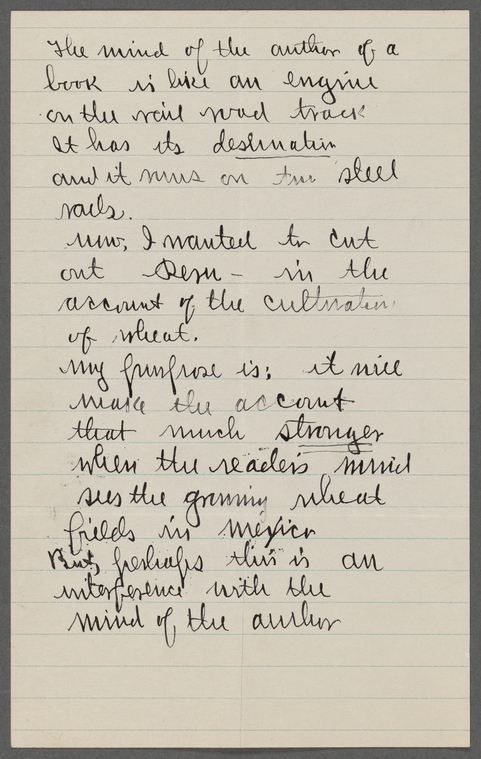 The mind of the author of a
book is like an engine
on the rail road track
It has its destination
and it runs on two steel
rails.
now, I wanted to cut
out Peru - in the
account of the cultivation
of wheat.
My purpose is; it will
make the account
that much stronger
when the reader's mind
sees the growing wheat
fields in Mexico
But, perhaps this is an
interference with the
mind of the author